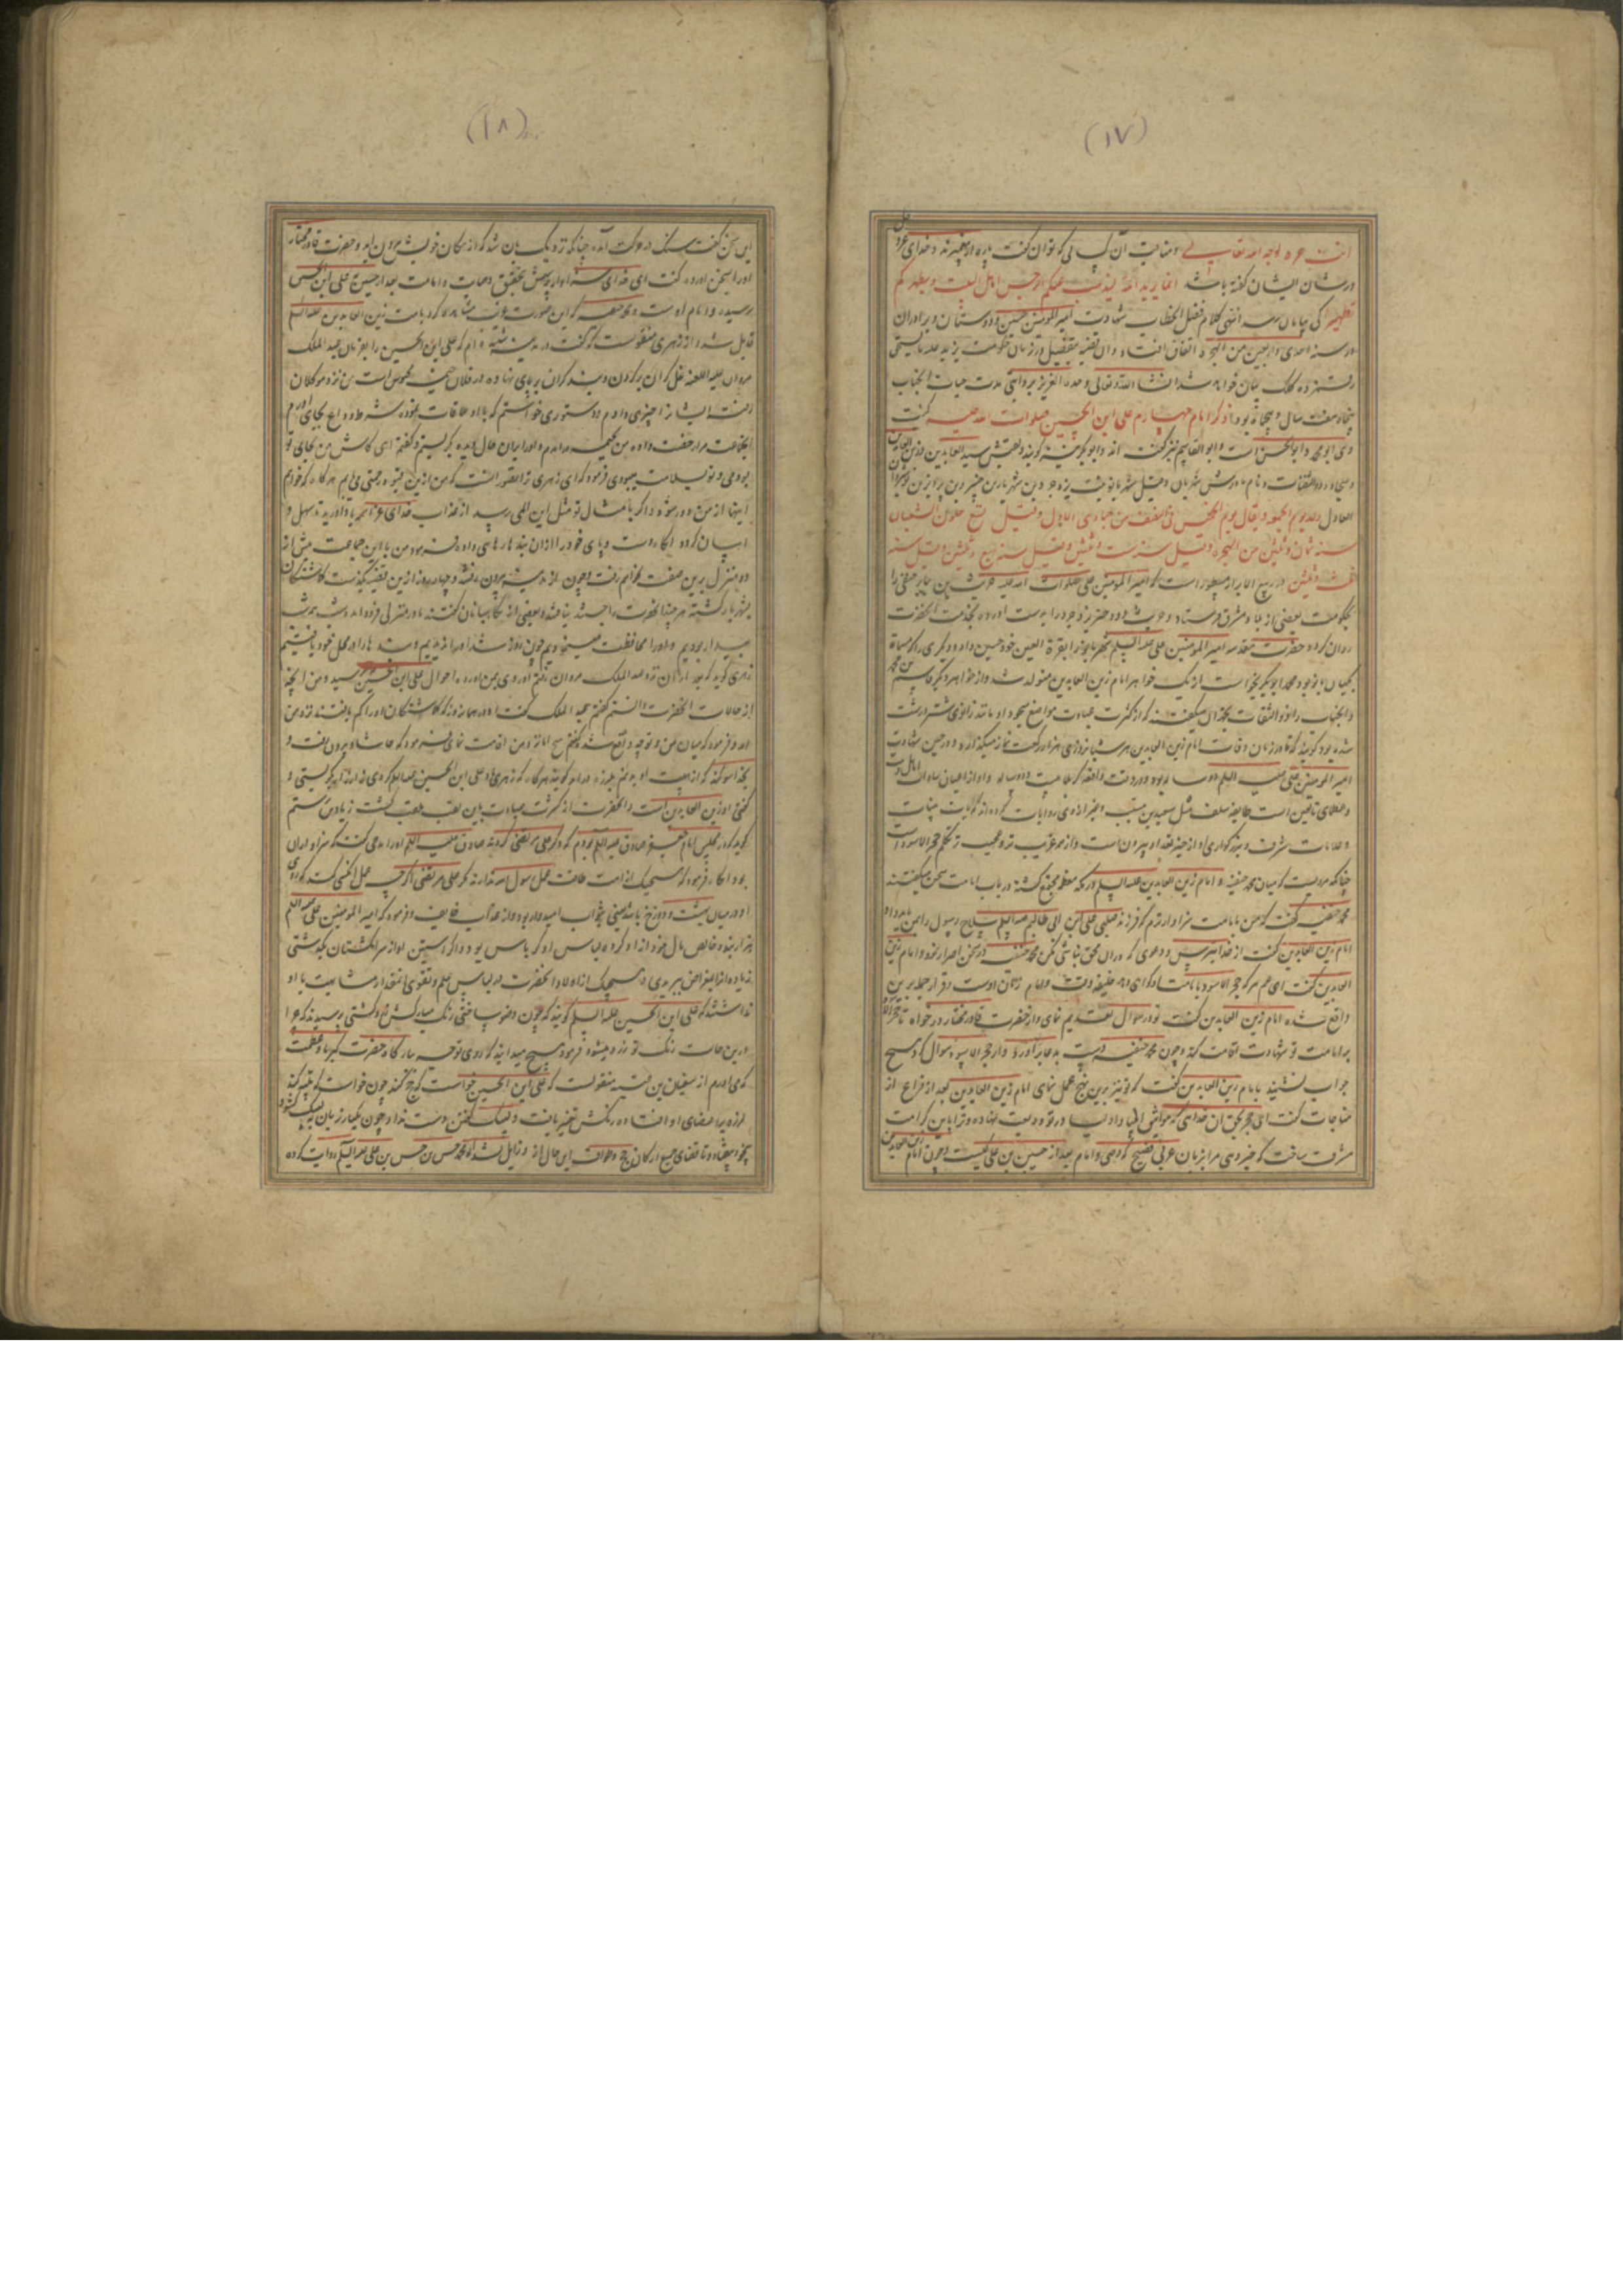 (١٧)
انت حره لوجه الله تعالی و مناقب آن کسانی که توان گفت پاره از پیغمبرند و خدای عز و جل
در شان ایشان گفته باشد انما یرید الله لیذهب عنکم الرجس اهل البیت و یطهرکم
تطهیرا کی بپایان رسد انتهی کلام فصل الخطاب شهادت امیر المومنین حسین و دوستان و برادران
در سنه احدی و اربعین من الهجره اتفاق افتاد و آن قضیه مفصل در زمان حکومت یزید علیه
رقمزده کلک بیان خواهد شد انشاء الله تعالی وحده العزیز بروایتی مدت حیات آنجناب
پنجاه و هفت سال و پنجاه بود ذکر امام چهارم علی ابن الحسین صلوات الله علیه کنیت
وی ابو محمد و ابو الحسن است و ابو القاسم نیز گفته اند و ابو بکر نیز گویند و لقبش سید العابدین و زین العابدین
و ذو الثفنات و نام مادرش شهربان و قیل شهربانو بنت یزدجرد بن شهریار بن
العادل ولد یوم الجمعه و یقال یوم الخمیس فی النصف من جمادی الاول و قیل تسع خلون من الشعبان
سنه ثمان و ثلثین من الهجره و قیل سنه ست و ثلثین و قیل سنه سبع و ثلثین و قیل سنه
خمس و ثلثین در ربیع الابرار مسطور است که امیر المومنین علی صلوات الله علیه حریث بن جابر حنفی را
بحکومت بعضی از بلاد مشرق فرستاد و حریث دو دختر یزدجرد را بدست آورده بخدمت آنحضرت
روان کرد و حضرت مقدسه امیر المومنین علی علیه السلم شهربانو را بقرة العین خود حسین داد و دیگری را که مسماة
بکیهان بانو بود بمحمد ابو بکر بخواست از یک خواهر امام زین العابدین متولد شد و از خواهر دیگر قاسم بن محمد
و آنجناب را ذو الثفنات بجهة آن میگفتند که از کثرت عبادت مواضع سجود او مانند زانوی شتر درشت
شده بود گویند که تا در زمان وفات امام زین العابدین هر شبانروزی هزار رکعت نماز میگذارد و در حین شهادت
امیر المومنین علی علیه السلم دو ساله بود و در وقت واقعه کربلا بیست و دو ساله و او از اعیان سادات اهل بیت
و علمای تابعین است طایفه سلف مثل سعید بن مسیب و غیر از وی روایات کرده اند کرامات بینات
و علامات شرف و بزرگواری او از حیز تعداد بیرانست و از همه غریب تر و عجیب تر تکلم حجر الاسود است
چنانکه مرویست که میان محمد حنفیه و امام زین العابدین علیه السلم در مکه معظمه مجتمع گشته در باب امامت سخن میگفتند
محمد حنفیه گفت که من بامامت سزاوار ترم که فرزند صلبی علی ابن ابی طالبم علیه السلم سلاح رسول را بمن باید داد
امام زین العابدین گفت از خدا بترس و دعوی که در آن محق نباشی مکن محمد حنفیه در سخن اصرار نموده و امام زین
العابدین گفت ای عم هر که حجر الاسود بامامت او گواهی دهد خلیفه وقت و امام زمان اوست و قرار جمله برین
واقع شده امام زین العابدین گفت تو در سوال تقدیم نمای و از حضرت قادر مختار درخواه تا حجر الاسود
بر امامت تو شهادت اقامت کند و چون محمد حنفیه دست بدعا برآورد و از حجر الاسود سوال کرد هیچ
جواب نشنید بامام زین العابدین گفت که تو نیز برین نهج عمل نمای امام زین العابدین بعد از فراغ از
مناجات گفت ای حجر بحق آن خدای که مواثیق انبیا و اولیا در تو ودیعت نهاده و ترا باین کرامت
مشرف ساخت که خبر دهی مرا بزبان عربی فصیح که وصی و امام بعد از حسین بن علی کیست و چون امام زین العابدین
(١٨)
این سخن گفت سنگ در حرکت آمد چنانکه نزدیک بان شد که از مکان خویش بیرون آید و حضرت قادر مختار
او را بسخن آورد گفت ای خدای سزاوار پرستش بتحقیق وصایت و امامت بعد از حسین بعلی ابن الحسین
رسید و امام اوست و محمد حنفیه که این صورت غریب مشاهده کرد بامامت زین العابدین علیه السلم
قایل شد و از زهری منقولست که گفت در مدینه شنیده ام که علی ابن الحسین را بفرمان عبد الملک
مروان علیه اللعنه غل گران بر گردن و بند گران بر پای نهاده در فلان خیمه محبوس است من نزد موکلان
رفته ایشانرا چیزی دادم و دستوری خواستم که با او ملاقات نموده شرط وداع بجای آورم
آنجماعت مرا رخصت داده من بخیمه درآمدم و او را بران حال دیده بگریستم و گفتم ای کاش من بجای تو
بودمی و تو بسلامت بودی فرمود که ای زهری ترا تصور آنست که من ازین قید در محنتی می باشم هر گاه که خواهم
اینها از من دور شود و اگر بامثال تو مثل این المی رسد از عذاب خدای عز اسمه یاد آورید تا سهل و
آسان گردد آنگاه دست و پای خود را ازان بندها رهائی داده فرمود من با این جماعت بیش از
دو منزل برین صفت نخواهم رفت و چون از مدینه بیرون رفتند و چهار روز ازین قضیه بگذشت گماشتگان
بشهر بازگشته هر چند آنحضرت را جستند نیافتند و بعضی از نگاهبانان گفتند ما در منزلی فرود آمده شب همه شب
بیدار بودیم و او را محافظت مینمودیم چون روز شد او را ندیدیم و بندها را در محل خود یافتیم
زهری گوید که بعد از آن نزد عبد الملک مروان رفتم او روی بمن آورده احوال علی ابن الحسین پرسید و من آنچه
از حالات آنحضرت دانستم گفتم عبد الملک گفت او در همان روز که گماشتگان او را گم یافتند نزد من
آمد و فرمود که میان من و تو چه واقع شده گفتم هیچ اما نزد من اقامت نمای فرمود که حاشا و بیرون رفت و
بخدا سوگند که از هیبت او بر من لرزه در آمد گویند هرگاه که زهری یاد علی ابن الحسین علیه السلم کردی زار زار بگریستی و
گفتی او زین العابدین است و آنحضرت از کثرت عبادت باین لقب ملقب گشت زیاد بن رستم
گوید که در مجلس امام جعفر صادق علیه السلم بودم که ذکر علی مرتضی کردند صادق علیه السلم او را مدحی گفت که سزاوار آن
بود آنگاه فرمود که هیچیک از امت طاقت عمل رسول الله ندارند مگر علی مرتضی اگر چه عمل آنکسی کند که روی
او در میان بهشت و دوزخ باشد یعنی بثواب امیدوار بود و از عذاب خایف و فرمود که امیر المومنین علی علیه السلم
هزار بنده خالص مال خود آزاد کرد و لباس او کرباس بود و اگر آستین او از سر انگشتان بگذشتی
زیاده از مقراض ببریدی و هیچیک از اولاد آنحضرت در لباس و علم و تقوی آنمقدار مشابهت با او
نداشتند که علی ابن الحسین علیه السلم گویند که چون وضو ساختی رنگ مبارکش زرد گشتی پرسیدند که چرا
درین حالت رنگ تو زرد میشود فرمود هیچ میدانید که روی توجه بدرگاه حضرت کبریا و عظمت
که می آورم از سفیان بن عیینه منقولست که علی ابن الحسین خواست که حج گذارد چون خواست که تلبیه کند
لرزه بر اعضای او افتاد و رنگش تغیر یافت و لبیک گفتن دست نداد و چون یکبار زبان بلبیک گشود
بیخود بیفتاد و تا قضای جمیع ارکان حج و طواف این حال از وی زایل نشد اما محمد حسن بن حسن بن علی علیه السلم روایت کرده